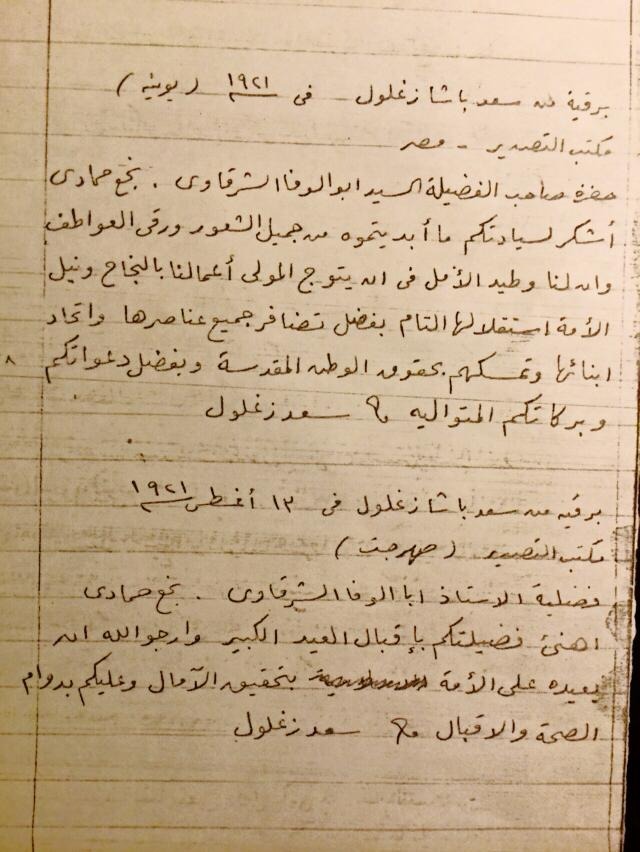 برقية من سعد باشا زغلول - فى ١٩٢١ (يونيه)
مكتب التصدير - مصر
حضرة صاحب الفضيلة السيد ابو الوفا الشرقاوى . نجع حمادى
أشكر لسيادتكم ما أبديتموه من جميل الشعور ورقى العواطف
وان لنا وطيد الأمل فى ان يتوج المولى أعمالنا بالنجاح ونيل
الأمة استقلالها التام بفضل تضافر جميع عناصرها واتحاد
ابنائها وتمسكهم بحقوق الوطن المقدسة وبفضل دعواتكم
وبركاتكم المتواليه سعد زغلول
برقيه من سعد باشا زغلول فى ١٣ أغسطس ١٩٢١
مكتب التصدير (صهرجت)
فضيلة الاستاذ ابا الوفا الشرقاوى . نجع حمادى
اهنئ فضيلتكم بإقبال العيد الكبير وارجو الله ان
يعيده على الأمة بتحقيق الآمال وعليكم بدوام
الصحة والاقبال سعد زغلول